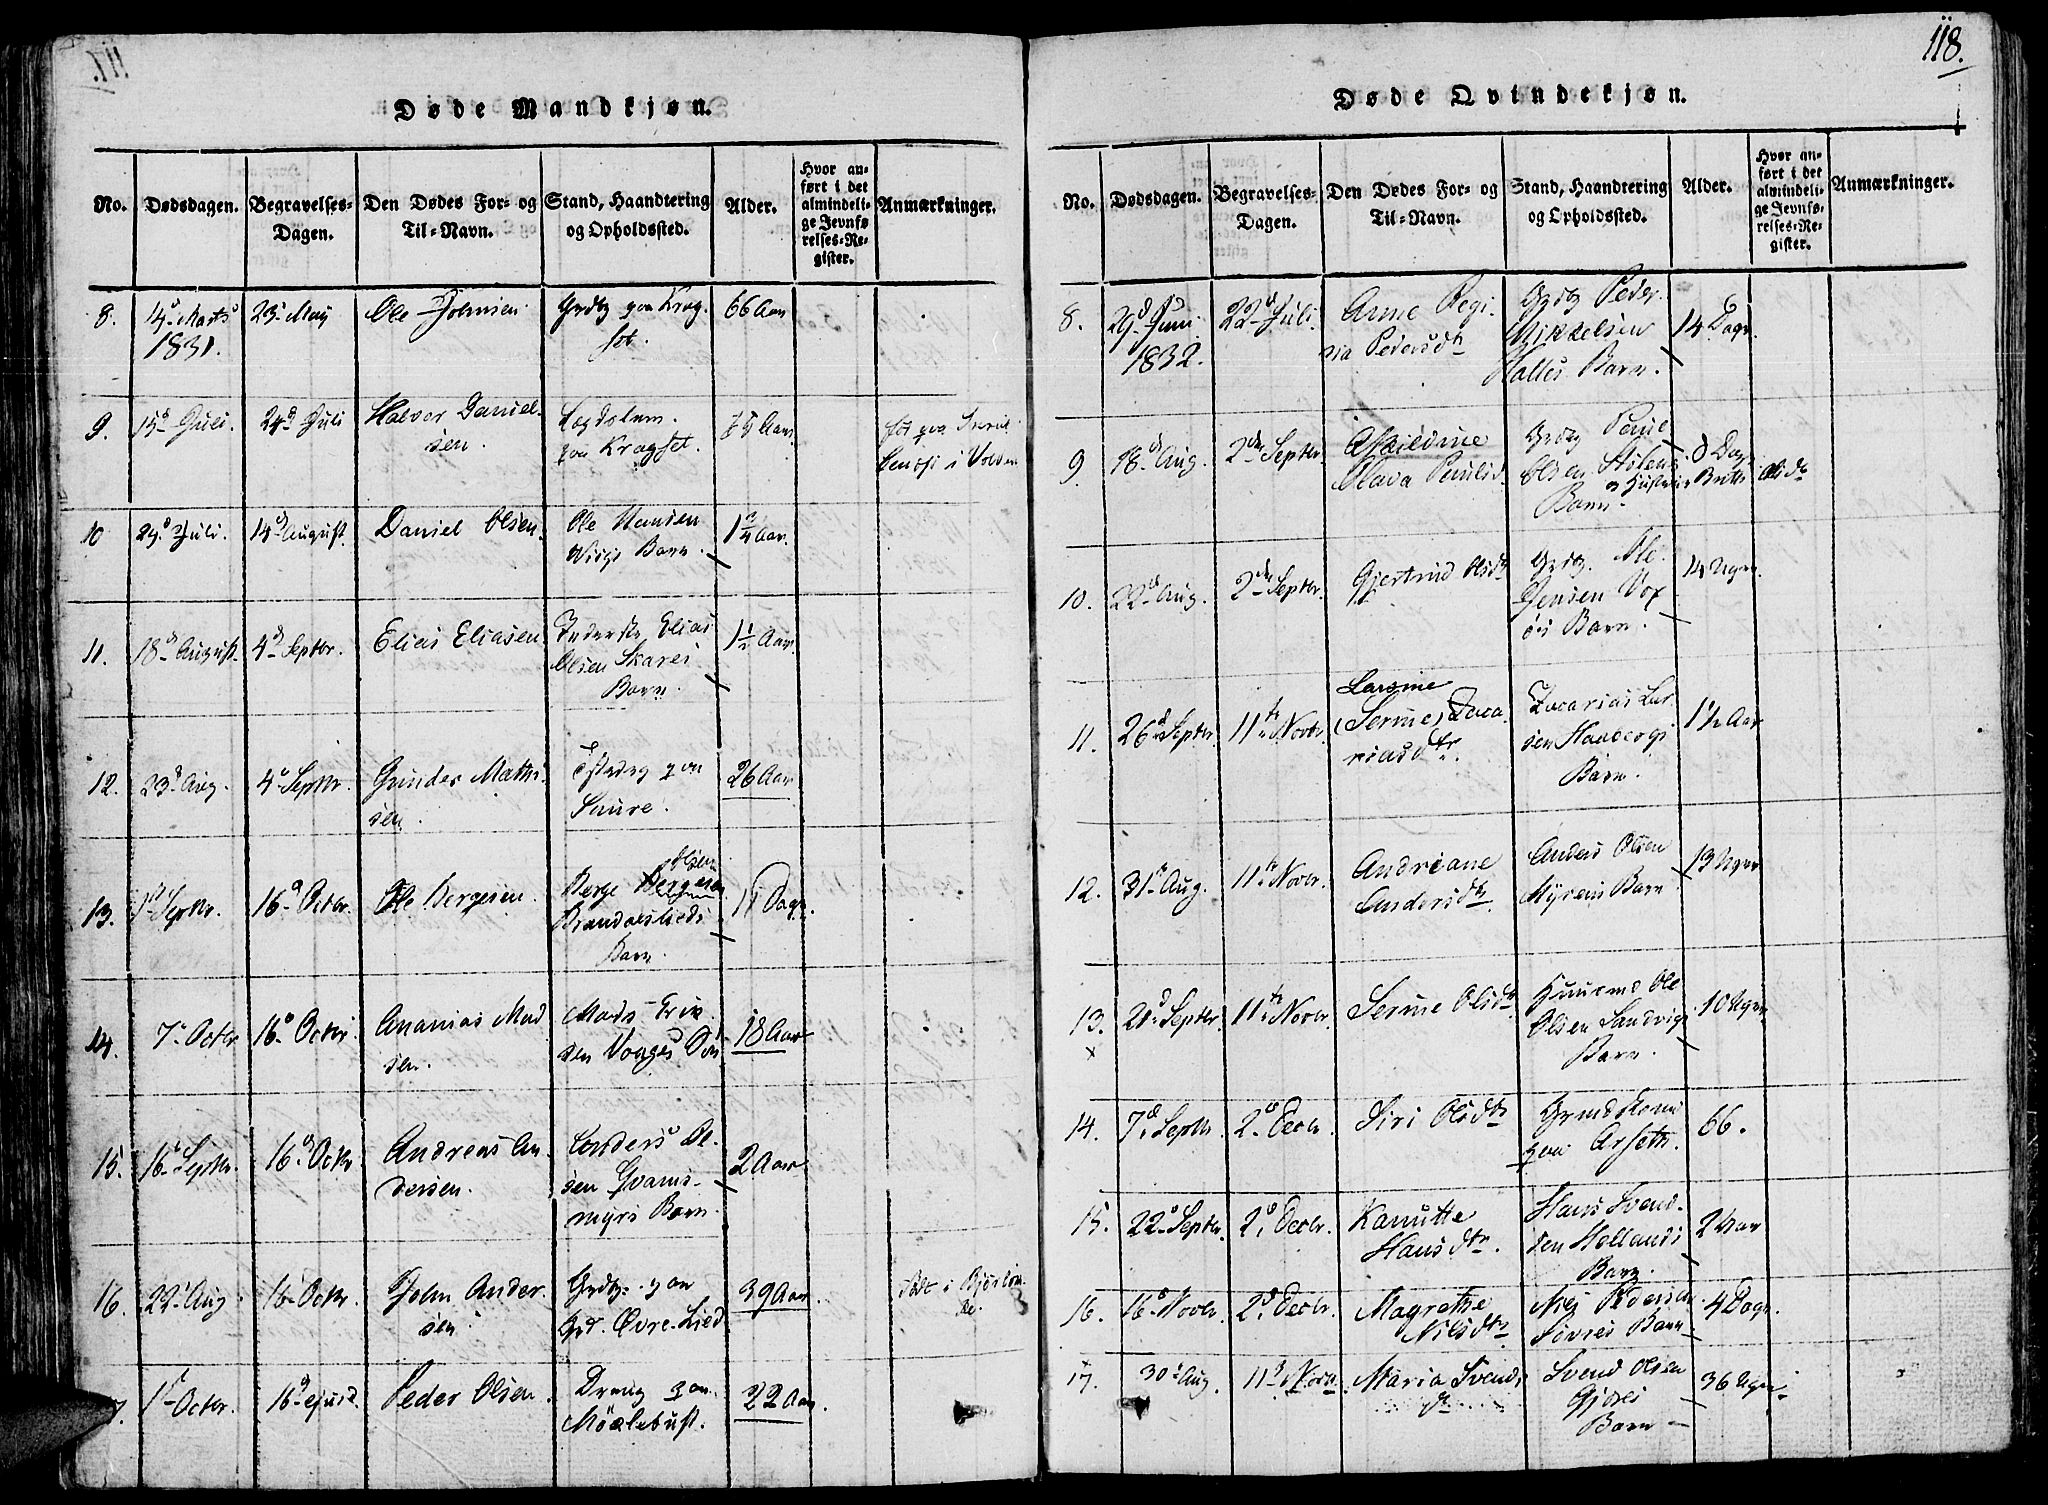 118.
Døde Mandkjøn.
No. Dødsdagen. Begravelses-Dagen. Den Dødes For- og Til-Navn. Stand, Haandtering og Opholdssted. Alder. Hvor anført i det almindelige Jevnførelses-Register. Anmærkninger.
8. 14d Marts 1831. 23d May Ole Johnsen Grdbr paa Kragset. 66 Aar
9. 15d Juli. 24d Juli Halvor Danielsen. Lægdslem paa Kragset.
i Volden
10 29d Juli. 14d August. Daniel Olsen. Ole Hansen Barn. 1 3/4 Aar.
11. 18d August. 4d Septbr. Elias Eliasen Inderste Elias Olsen Skares Barn. 1 1/2 Aar
12. 23d Aug. 4d Septbr. Gunder Mathisen. paa Saure. 26 Aar
13. 1st Septbr. 16d Octbr. Ole Bergesen. Berge Olsen Brandalslieds Barn. 11 Dage.
14. 7d Octbr 16d Octbr. Ananias Madsen. Mads Erixsen Vonges Søn 18 Aar
15. 16d Septbr. 16d Octbr Andreas Andersen. Anders Olsen Qvamsmyrs Barn. 2 Aar
16. 22d Aug. 16d Octbr. John Andersen. Grdbr. paa Grd. Øvre-Lied 39 Aar.
17. 1st Octbr. 16d ejusd. Peder Olsen. Dreng paa Möklebust. 22 Aar
Døde Qvindekjøn.
No. Dødsdagen. Begravelses-Dagen. Den Dødes For- og Til-Navn. Stand, Haandtering og Opholdssted. Alder. Hvor anført i det almindelige Jevnførelses-Register. Anmærkninger.
8. 29d Juni 1832. 22d Juli. Anne Regina Pedersdtr Grdbr Peder Mikkelsen Barn. 14 Dage.
9 18d Aug. 2den Septbr. Olava Paulsd. Grdbr Poul Olsen Barn. 8 Dage
10. 22d Aug. 2den Septbr. Gjertrud Olsdtr Grdbr. Ole Jensen Barn. 14 Uger.
11. 26d Septbr. 11te Novbr. Larsine (Serine) Zacariasdtr. Zacarias Larsen Haabergs Barn. 1 1/2 Aar
12. 31te Aug. 11te Novbr. Andriane Andersdtr. Anders Olsen Myrens Barn. 13 Uger
13. 21d Septbr. 11te Novbr. Serine Olsdtr Huusmd Ole Olsen Sandvigs Barn. 10 Uger
14. 7d Septbr. 2d Decbr. Siri Olsdtr paa Arseth. 66.
15. 22d Septbr. 2d Decbr. Kanutte Hansdtr. Hans Svendsen Hollands Barn. 2 Aar
16. 16d Novbr. 2d Decbr. Magrethe Nilsdtr Niels Pedersen Barn 4 Dage.
17. 30d Aug. 11te Novbr Maria Svendsdtr Svend Olsen Gjæres Barn 36 Uger